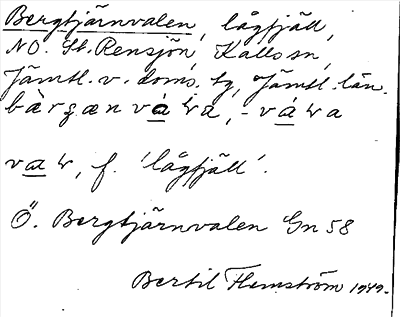 Bergtjärnvalen, lågfjäll,
NO. St. Rensjön, Kall sn,
Jämtl. v. doms. tg, Jämtl. län.
f. 'lågfjäll'.
Ö. Bergtjärnvalen Gn 58
Bertil Flemström 1949.